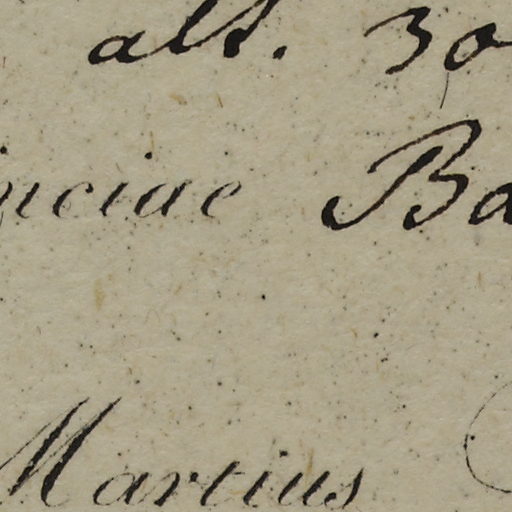 alt. 30
inciae Ba
Martius